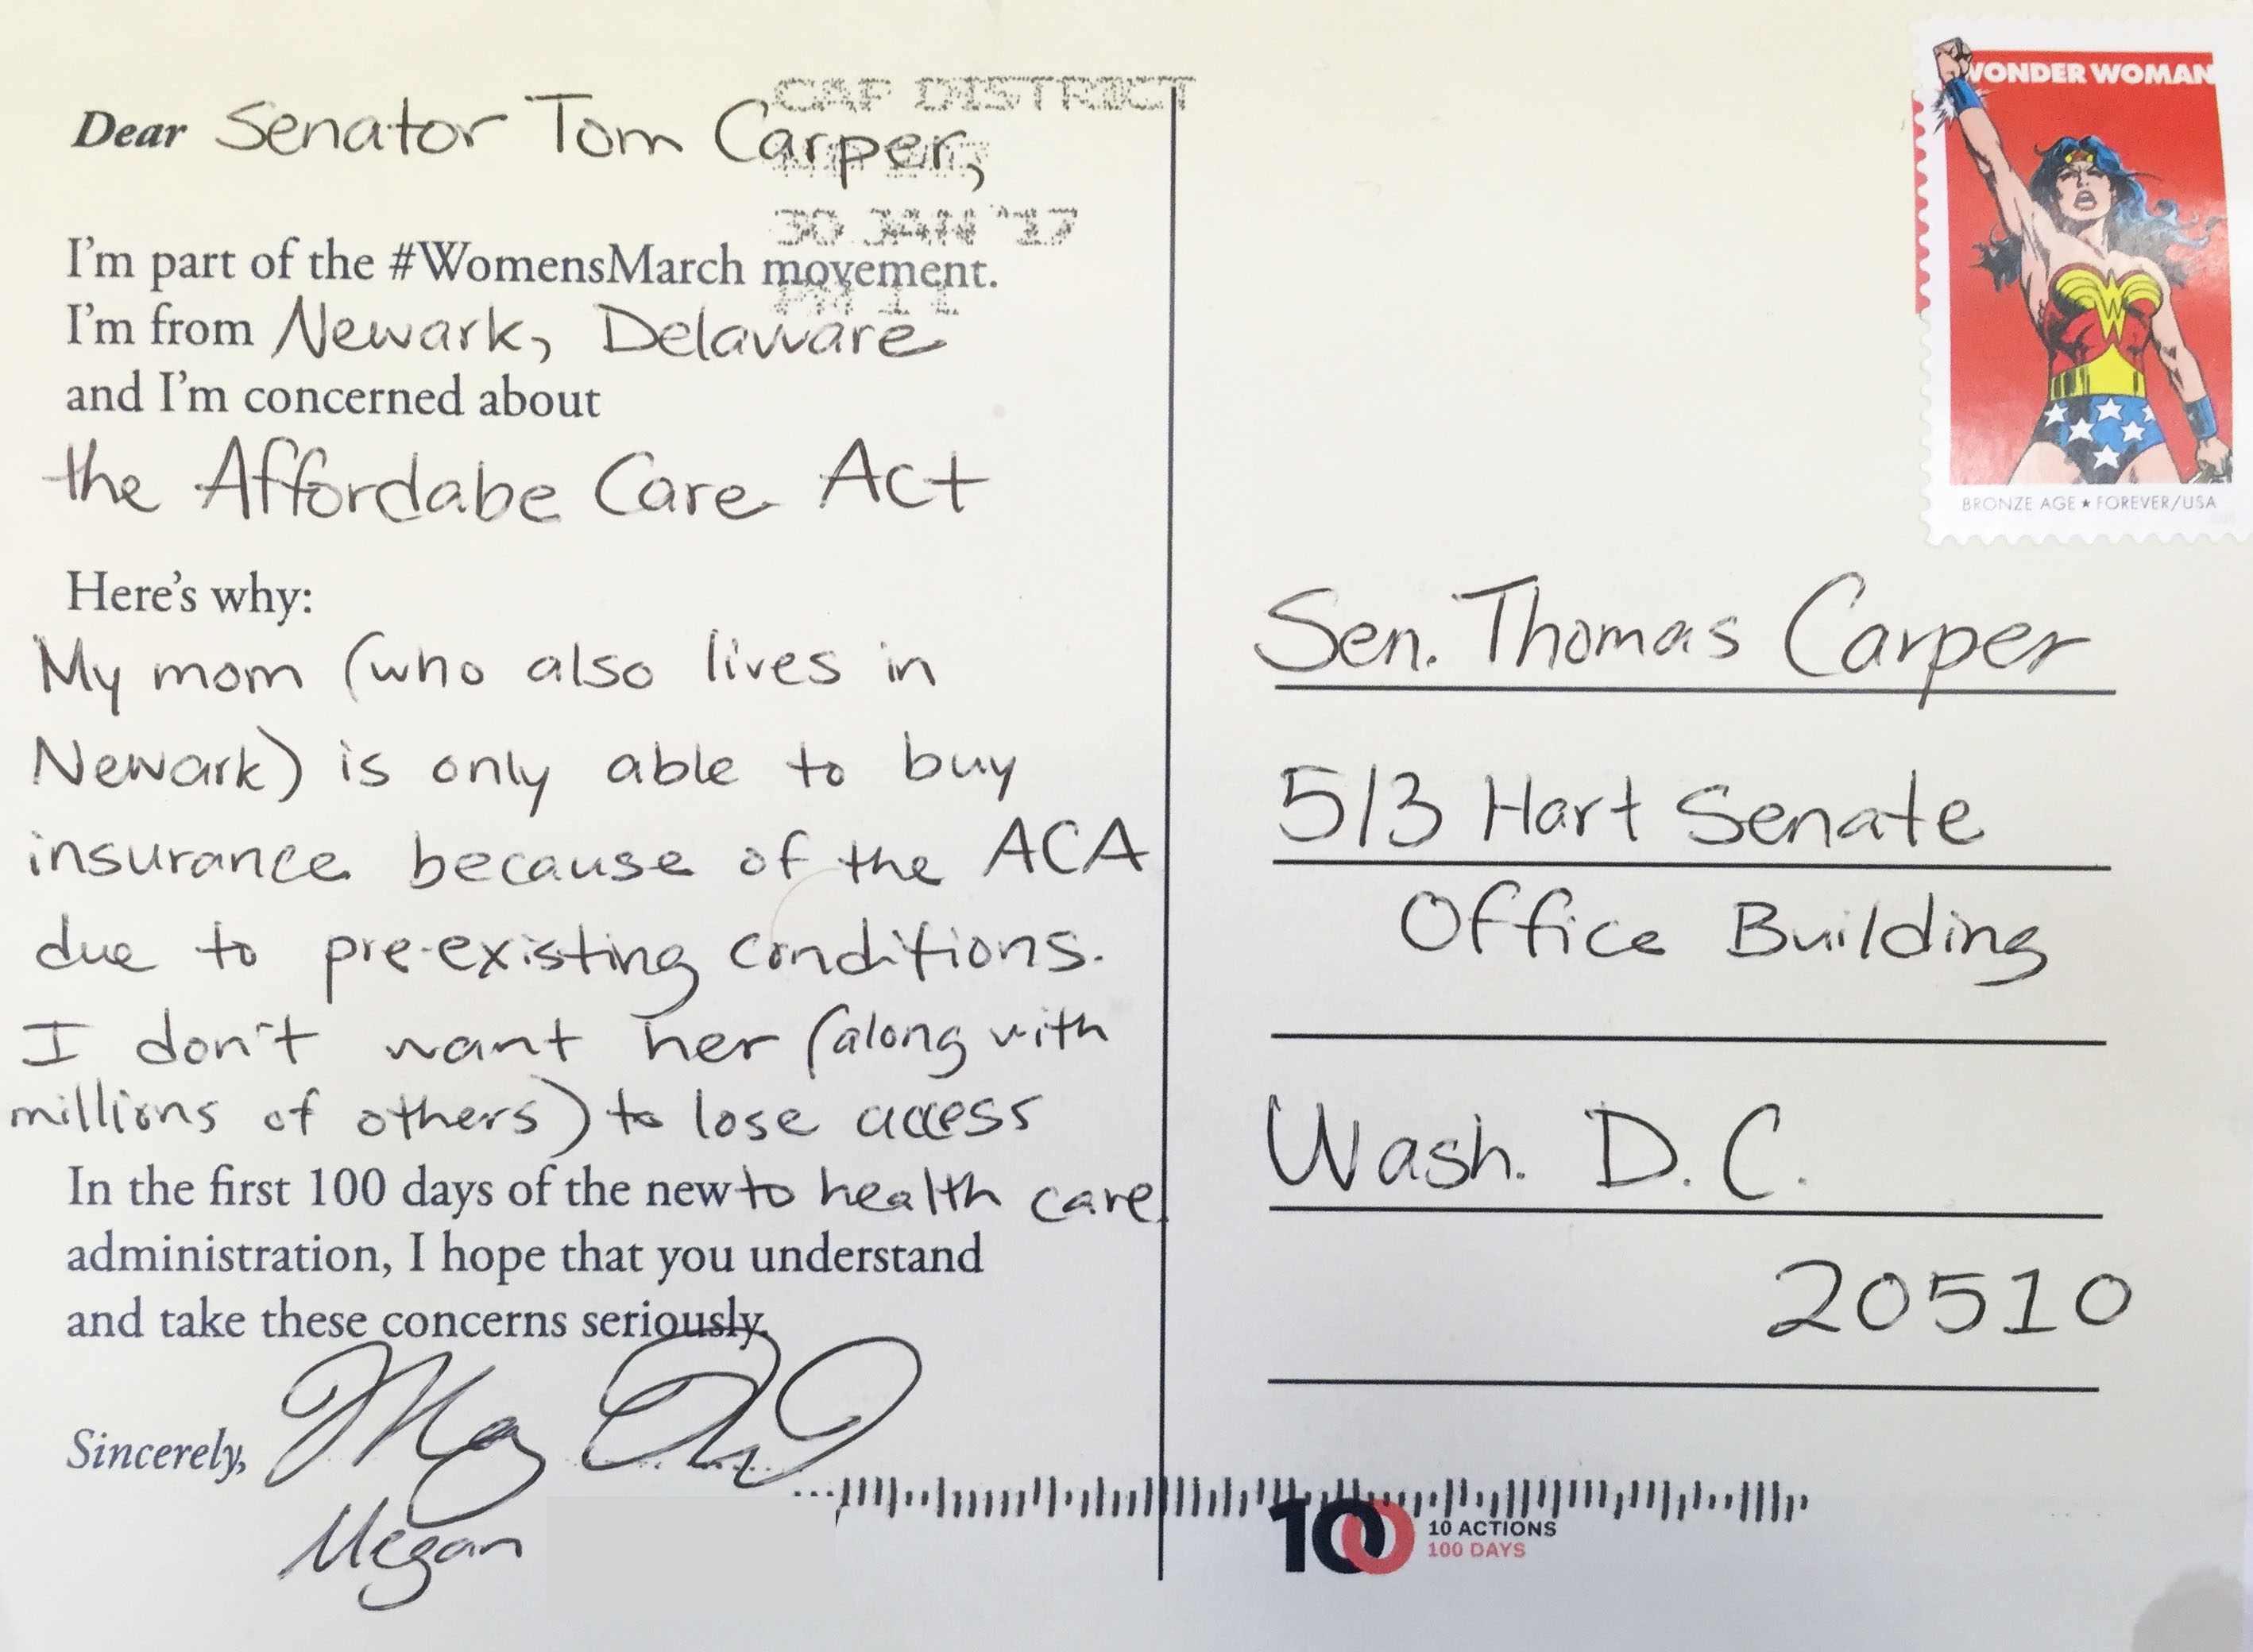 CAP DISTRICT
30 JAN '17
PM 11
Dear Senator Tom Carper,
I'm part of the #WomensMarch movement.
I'm from Newark, Delaware
and I'm concerned about
the Affordabe Care Act
Here's why:
My mom (who also lives in
Newark) is only able to buy
insurance because of the ACA
due to pre-existing conditions.
I don't want her (along with
millions of others) to lose access
to health care.
In the first 100 days of the new
administration, I hope that you understand
and take these concerns seriously.
Sincerely,
Megan
WONDER WOMAN
BRONZE AGE ★ FOREVER/USA
Sen. Thomas Carper
513 Hart Senate
Office Building
Wash. D.C.
20510
100
10 ACTIONS
100 DAYS